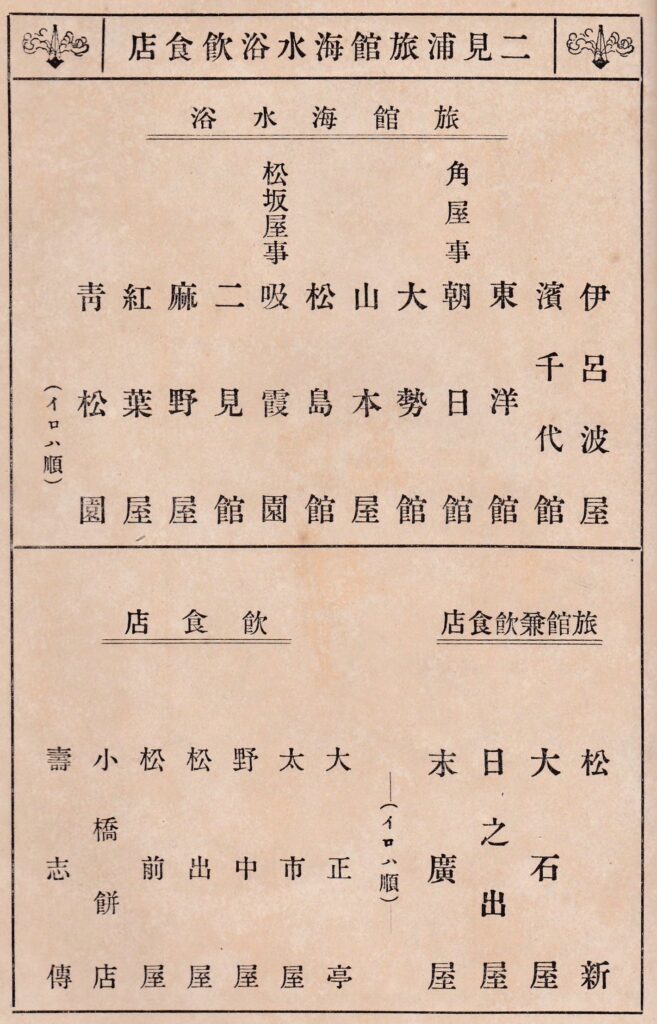 二見浦旅館海水浴飲食店
旅館海水浴
伊呂波屋
濱千代館
東洋館
角屋事 朝日館
大勢館
山本屋
松島館
松坂屋事 吸霞園
二見館
麻野屋
紅葉屋
靑松園
(イロハ順)
旅館兼飲食店
松新
大石屋
日之出屋
末廣屋
(イロハ順)
飲食店
大正亭
太市屋
野中屋
松出屋
松前屋
小橋餅店
壽志傳